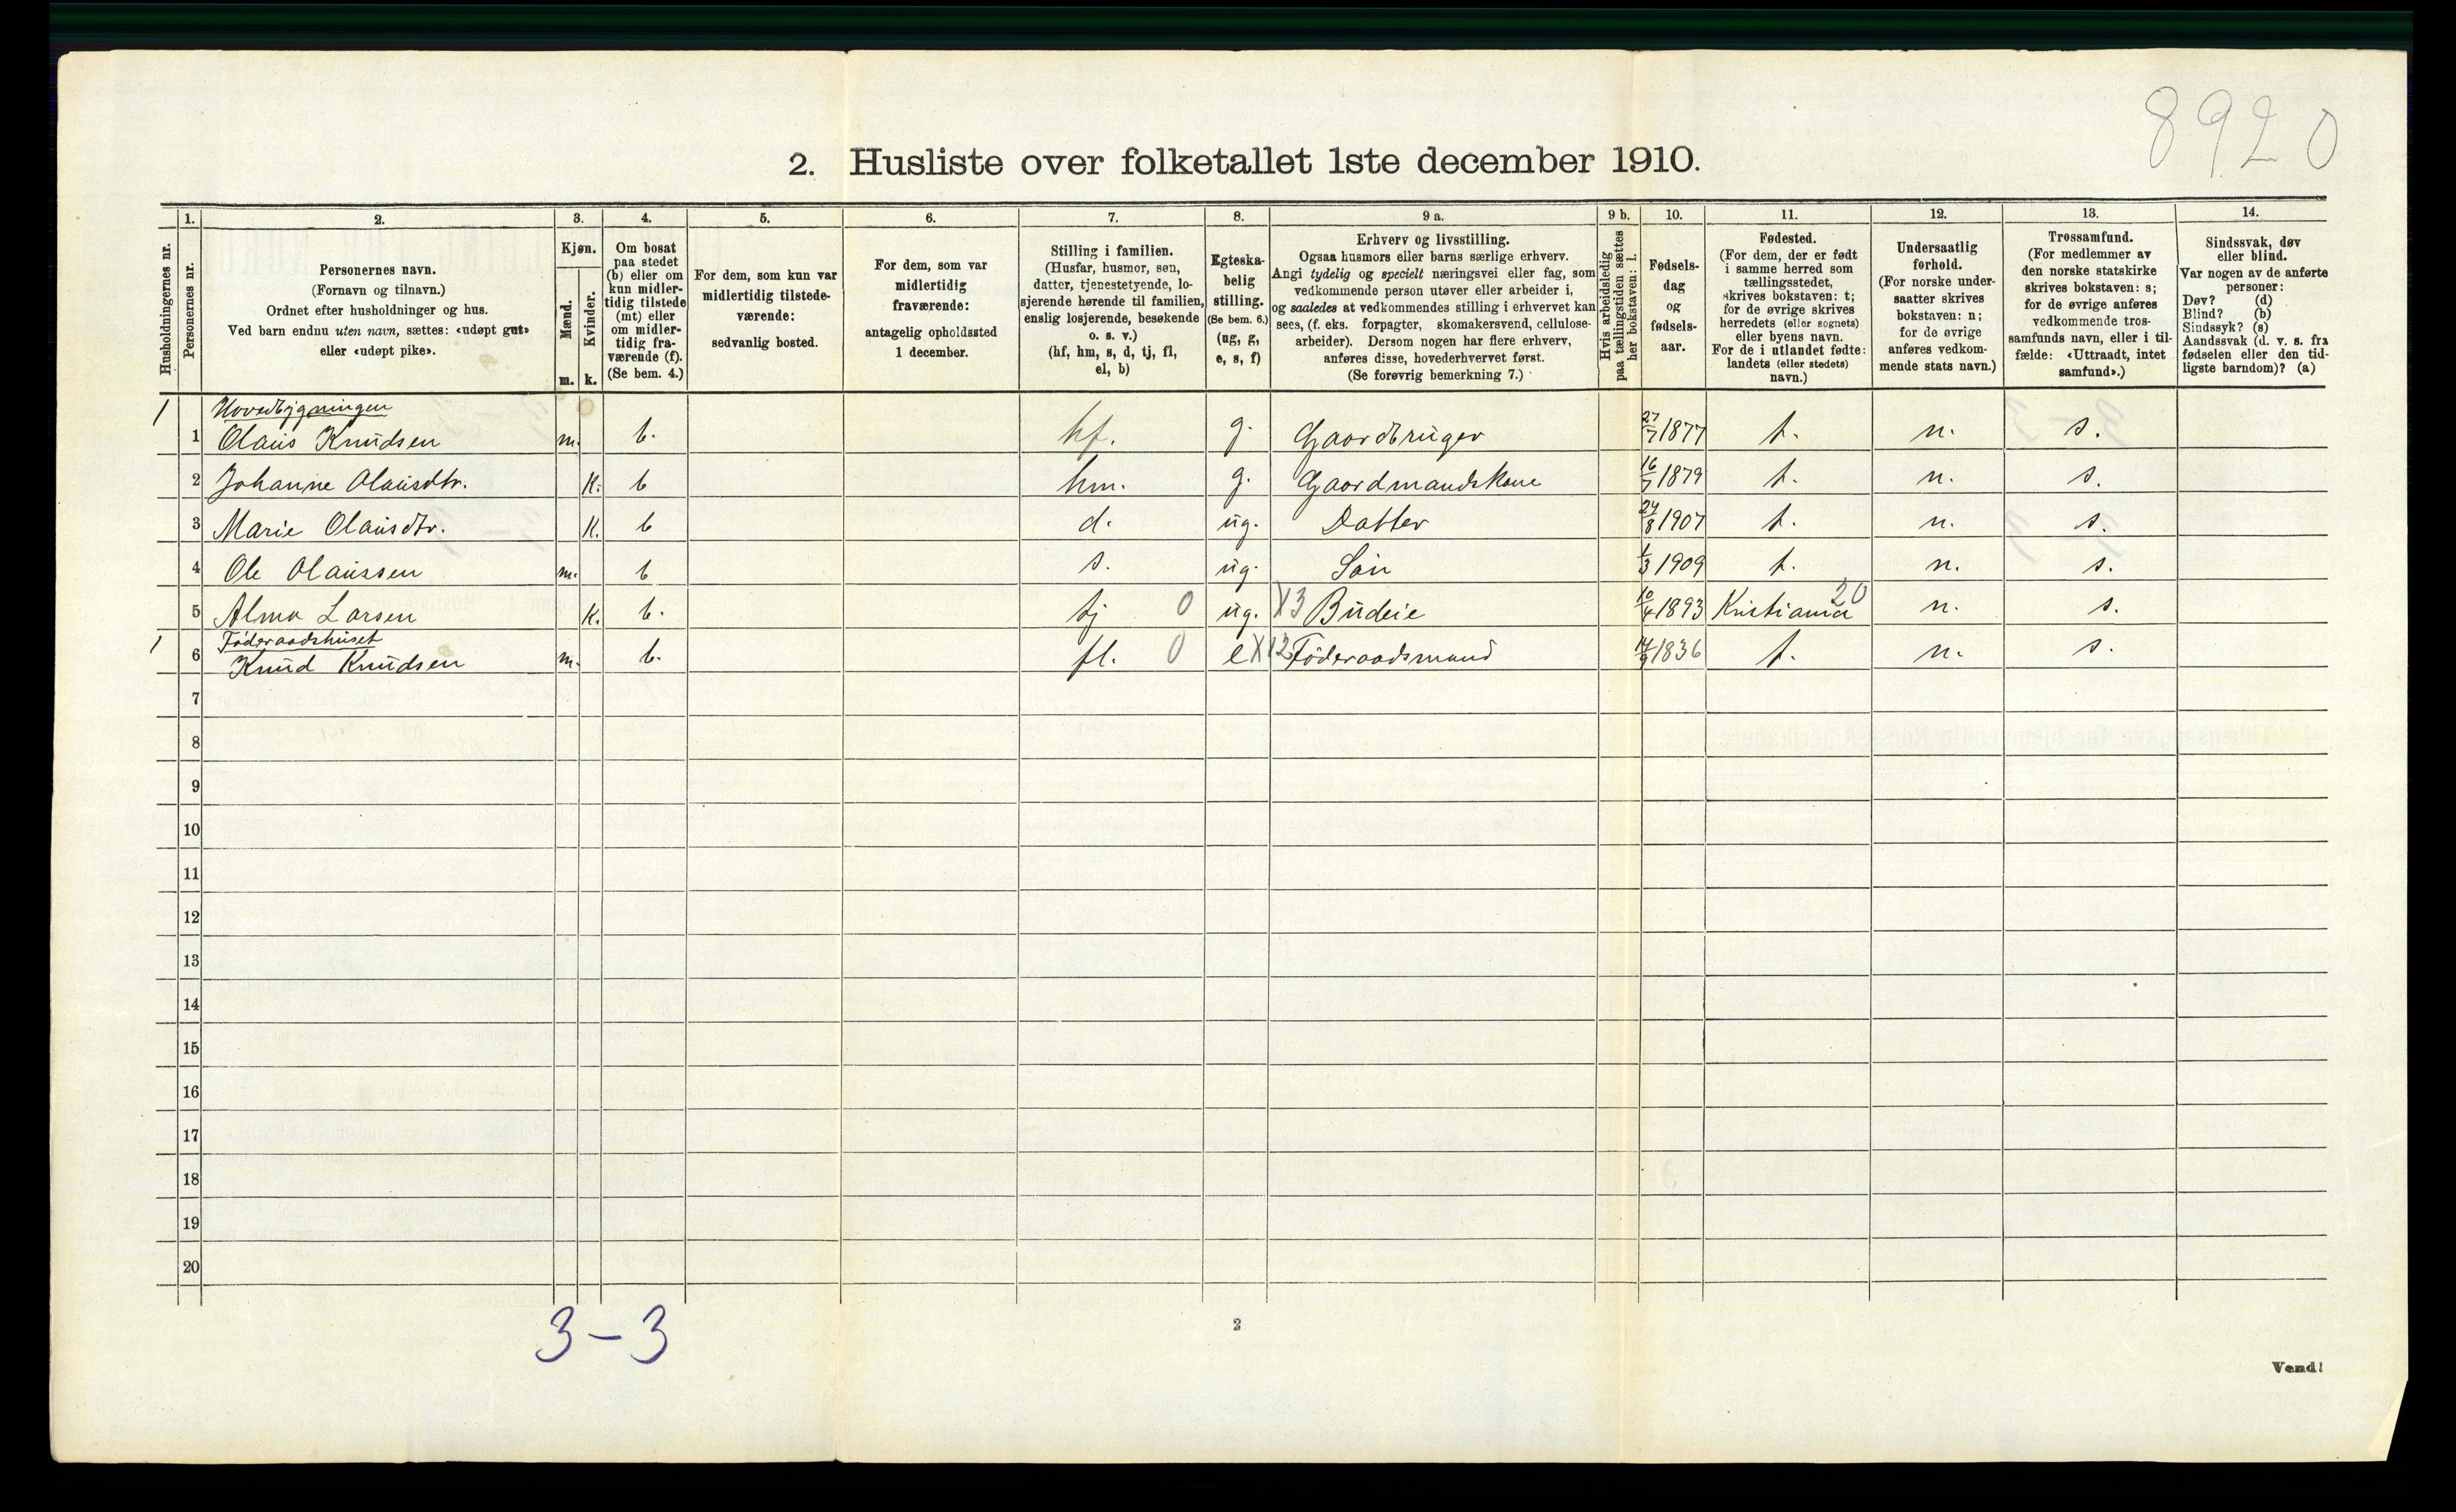 8920
2. Husliste over folketallet 1ste december 1910.
Husholdningernes nr.
1.
Personernes nr.
2.
Personernes navn.
(Fornavn og tilnavn.)
Ordnet efter husholdninger og hus.
Ved barn endnu uten navn, sættes: «udøpt gut»
eller «udøpt pike».
3.
Kjøn.
Mænd.
m.
Kvinder.
k.
4.
Om bosat
paa stedet
(b) eller om
kun midler-
tidig tilstede
(mt) eller
om midler-
tidig fra-
værende (f).
(Se bem. 4.)
5.
For dem, som kun var
midlertidig tilstede-
værende:
sedvanlig bosted.
6.
For dem, som var
midlertidig
fraværende:
antagelig opholdssted
1 december.
7.
Stilling i familien.
(Husfar, husmor, søn,
datter, tjenestetyende, lo-
sjerende hørende til familien,
enslig losjerende, besøkende
o. s. v.)
(hf, hm, s, d, tj, fl,
el, b)
8.
Egteska-
belig
stilling.
(Se bem. 6.)
(ug, g,
e, s, f)
9 a.
Erhverv og livsstilling.
Ogsaa husmors eller barns særlige erhverv.
Angi tydelig og specielt næringsvei eller fag, som
vedkommende person utøver eller arbeider i,
og saaledes at vedkommendes stilling i erhvervet kan
sees, (f. eks. forpagter, skomakersvend, cellulose-
arbeider). Dersom nogen har flere erhverv,
anføres disse, hovederhvervet først.
(Se forøvrig bemerkning 7.)
9 b.
Hvis arbeidsledig
paa tællingstiden sættes
her bokstaven: l.
10.
Fødsels-
dag
og
fødsels-
aar.
11.
Fødested.
(For dem, der er født
i samme herred som
tællingsstedet,
skrives bokstaven: t;
for de øvrige skrives
herredets (eller sognets)
eller byens navn.
For de i utlandet fødte:
landets (eller stedets)
navn.)
12.
Undersaatlig
forhold.
(For norske under-
saatter skrives
bokstaven: n;
for de øvrige
anføres vedkom-
mende stats navn.)
13.
Trossamfund.
(For medlemmer av
den norske statskirke
skrives bokstaven: s;
for de øvrige anføres
vedkommende tros-
samfunds navn, eller i til-
fælde: «Uttraadt, intet
samfund».)
14.
Sindssvak, døv
eller blind.
Var nogen av de anførte
personer:
Døv? (d)
Blind? (b)
Sindssyk? (s)
Aandssvak (d. v. s. fra
fødselen eller den tid-
ligste barndom)? (a)
1 Hovedbygningen
1 Olaus Knudsen m. b. hf. g. Gaardbruger 27/7 1877 t. n. s.
2 Johanne Olausdtr. K. b hm. g. Gaardmandskone 16/7 1879 t. n. s.
3 Marie Olausdtr. K. b d. ug. Datter 24/8 1907 t. n. s.
4 Ole Olaussen m. b s. ug. Søn 1/3 1909 t. n. s.
5 Alma Larsen K. b. tj 0 ug. X3 Budeie 10/4 1893 Kristiania 20 n. s.
1 Föderaadshuset
6 Knud Knudsen m. b. fl. 0 e X12 Föderaadsmand 14/9 1836 t. n. s.
7
8
9
10
11
12
13
14
15
16
17
18
19
20
3-3
2
Vend!